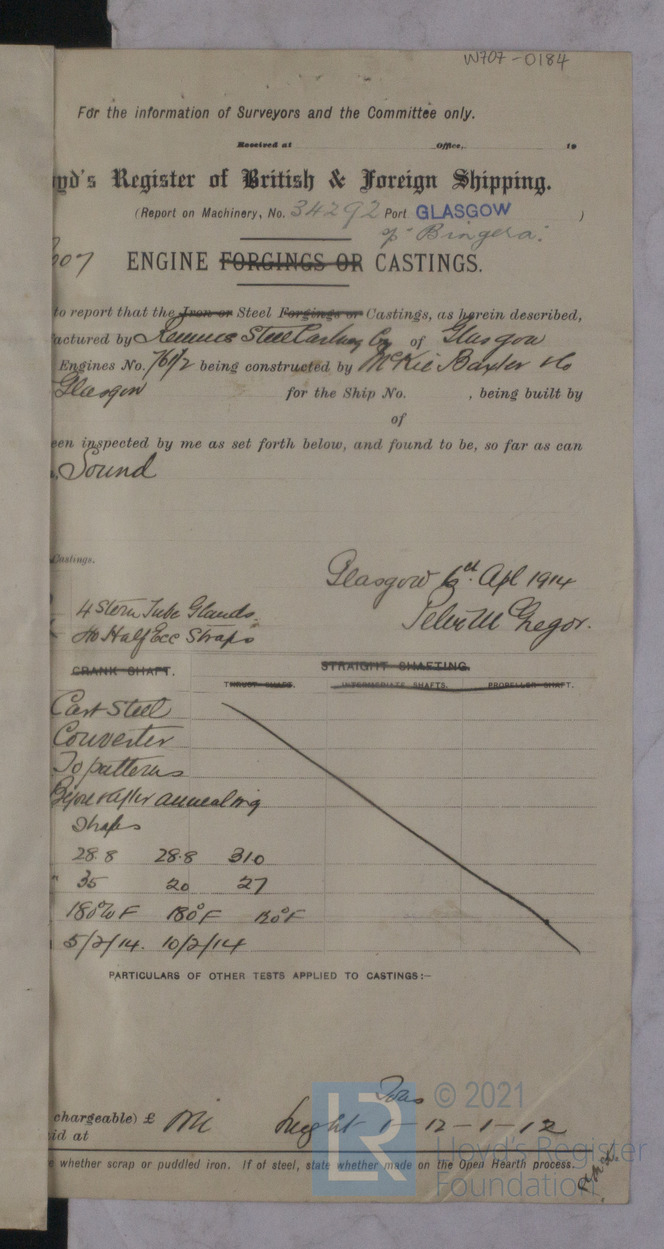 W707-0184
For the information of Surveyors and the Committee only.
Received at Office, 19
yd's Register of British & Foreign Shipping.
(Report on Machinery, No. 34292 Port GLASGOW )
Bingera.
ENGINE FORGINGS OR CASTINGS.
to report that the Iron or Steel Forgings or Castings, as herein described,
actured by Steel Co of Glasgow
Engines No. being constructed by McKie Baxter & Co
Glasgow for the Ship No. , being built by
of
een inspected by me as set forth below, and found to be, so far as can
Sound
Castings.
Glasgow Apl 1914
4 Stern Tube Glands
Half Ecc Straps
Peter McGregor.
CRANK SHAFT. STRAIGHT SHAFTING.
THRUST SHAFT. INTERMEDIATE SHAFTS. PROPELLER SHAFT.
Cast Steel
Converter
To patterns
Before & after annealing
Straps
28.8 28.8 310
35 20 27
180° F 180° F
5/2/14. 10/2/14
PARTICULARS OF OTHER TESTS APPLIED TO CASTINGS:—
chargeable) £
id at
1-12-1-12
whether scrap or puddled iron. If of steel, state whether made on the Open Hearth process.
LR
© 2021
Lloyd's Register
Foundation